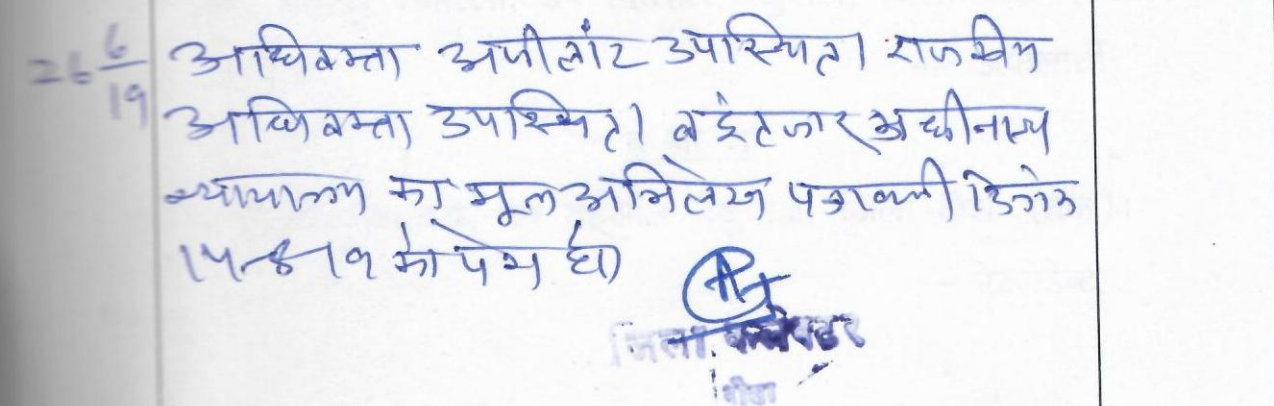 26 6/19
अधिवक्ता अपीलांट उपस्थित। राजकीय
अधिवक्ता उपस्थित। व इंतजार अधीनस्थ
न्यायालय का मूल अभिलेख पत्रावली दिनांक
को पेश हो
जिला कलेक्टर